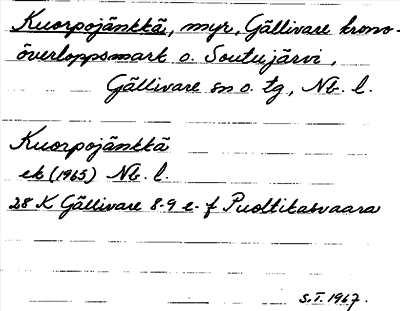 Kuorpojänkkä, myr, Gällivare krono-
överloppsmark o. Soutujärvi,
Gällivare sn o. tg, Nb. l.
Kuorpojänkkä
ek (1965) Nb. l.
28 K Gällivare 8-9 e-f Puoltikasvaara
S.I. 1967.